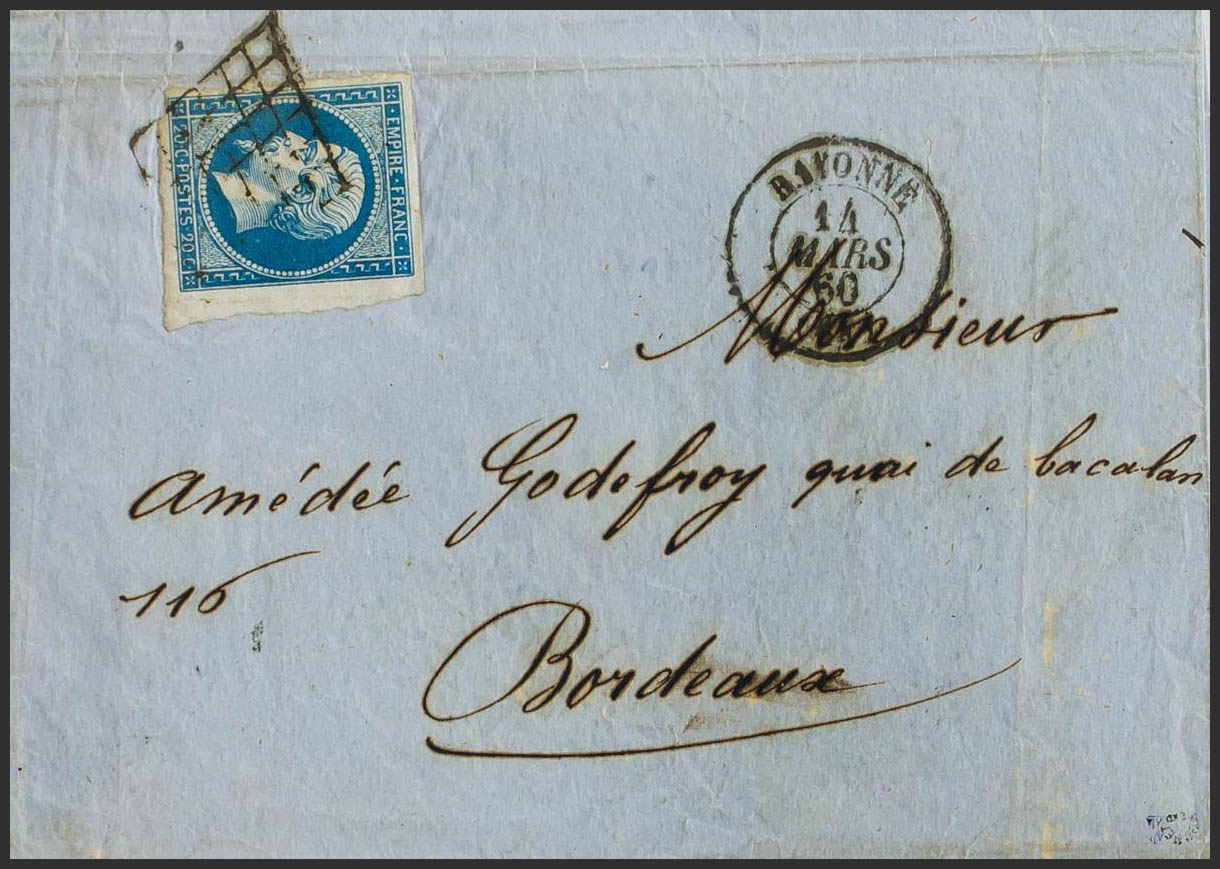 EMPIRE · FRANC ·
20 · C · POSTES · 20 · C ·
BAYONNE
14
MARS
60
Monsieur
Amédée Godefroy quai de bacalan
116
Bordeaux